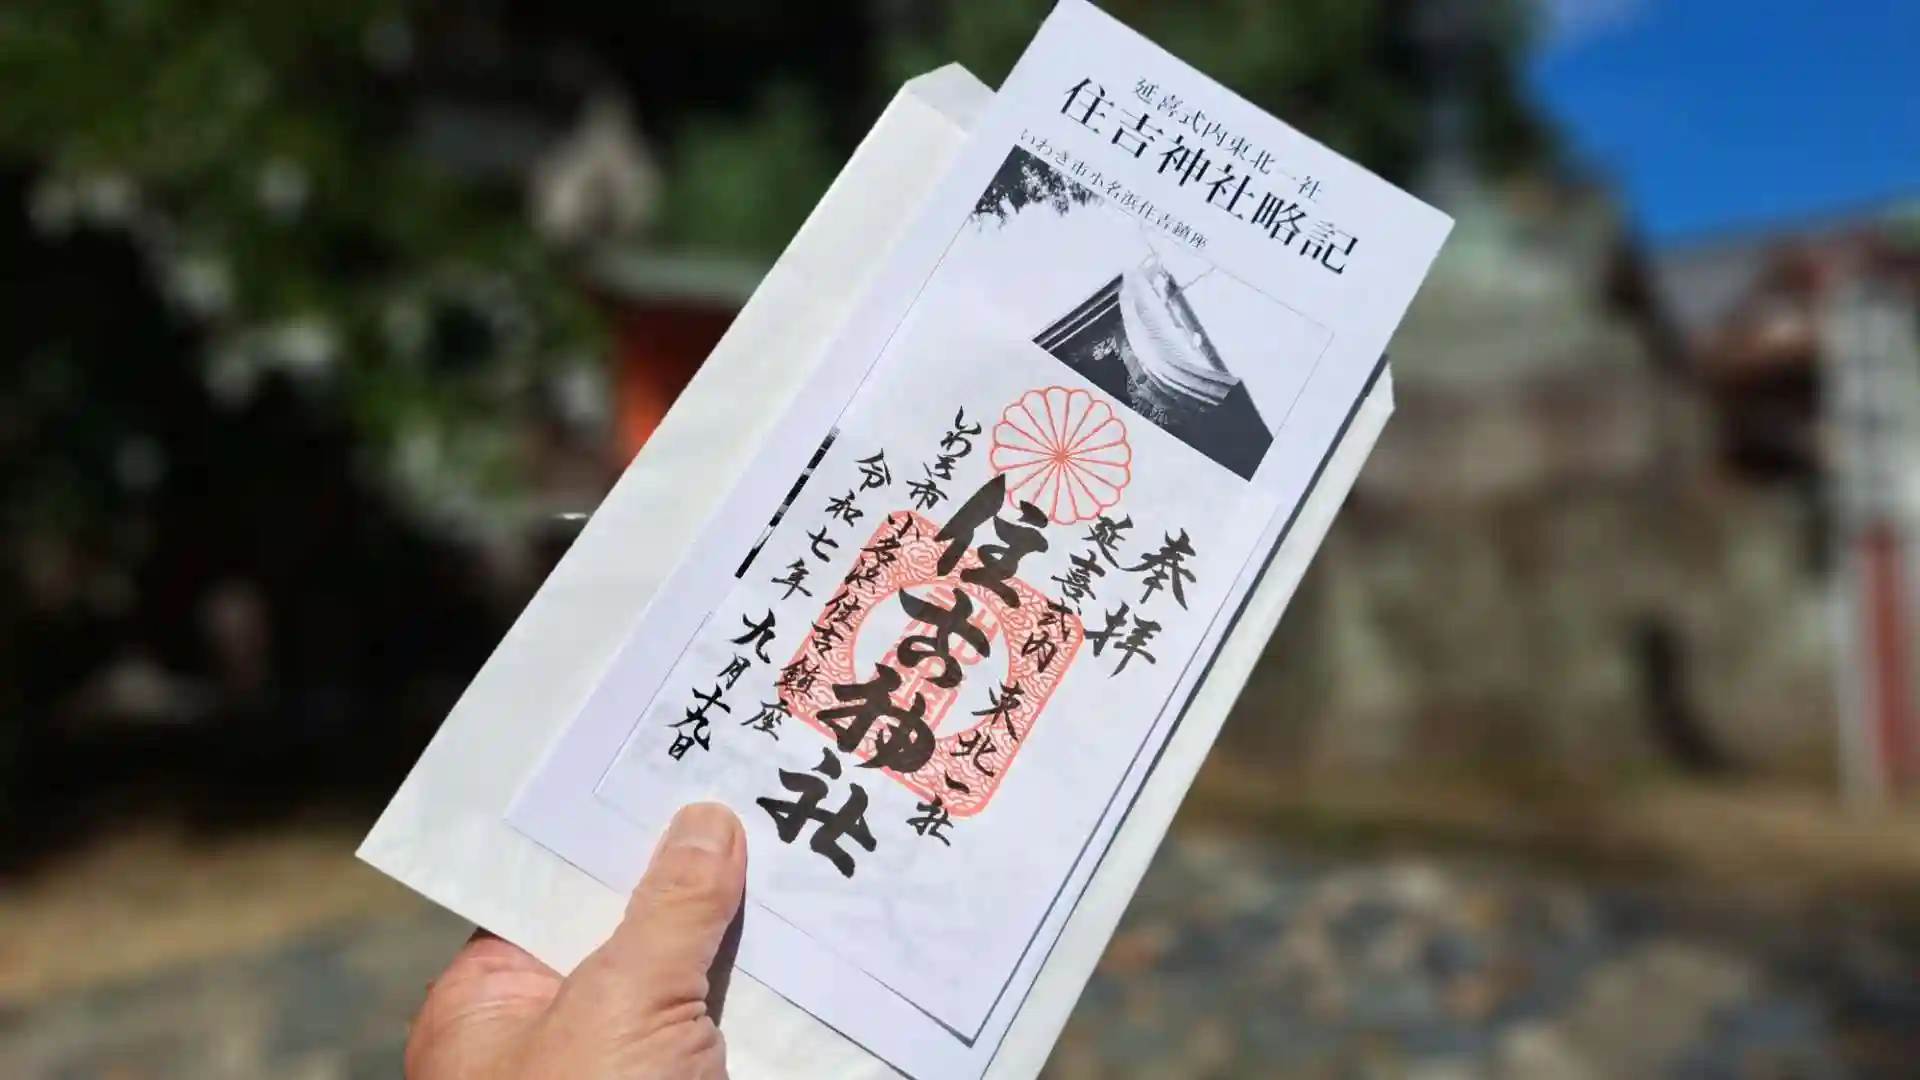 延喜式内東北一社
住吉神社略記
いわき市小名浜住吉鎮座
奉拝
延喜式内 東北一社
住吉神社
いわき市小名浜住吉鎮座
令和七年九月十九日